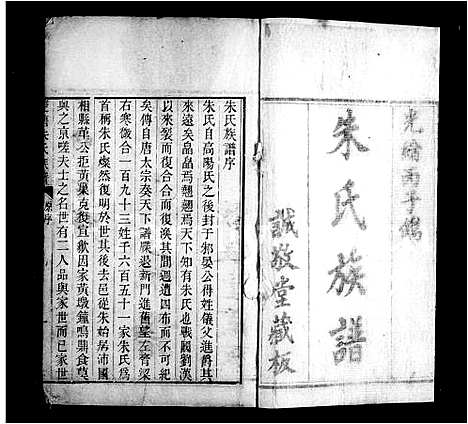 光緒丙子鐫
朱氏族譜
誠敬堂藏板
朱氏族譜序
朱氏自高陽氏之後封于邾晏公得姓儀父進爵其
來遠矣晶晶焉翹翹焉天下知有朱氏也戰劉漢
以來裂而復合合而復離其間遷遺四布而不可紀
矣傳自唐太宗奏天下諸牒退新門進舊望左膏梁
右寒微合一百九十三姓千六百五十一家朱氏爲
首柄朱氏燦然復明於世其後去邑從朱始居沛國
相縣葉公拒黃巢克復宣歙因家黃墩鐘鳴鼎食莫
與之京嗟夫士之名世有二人品與家世而已家世